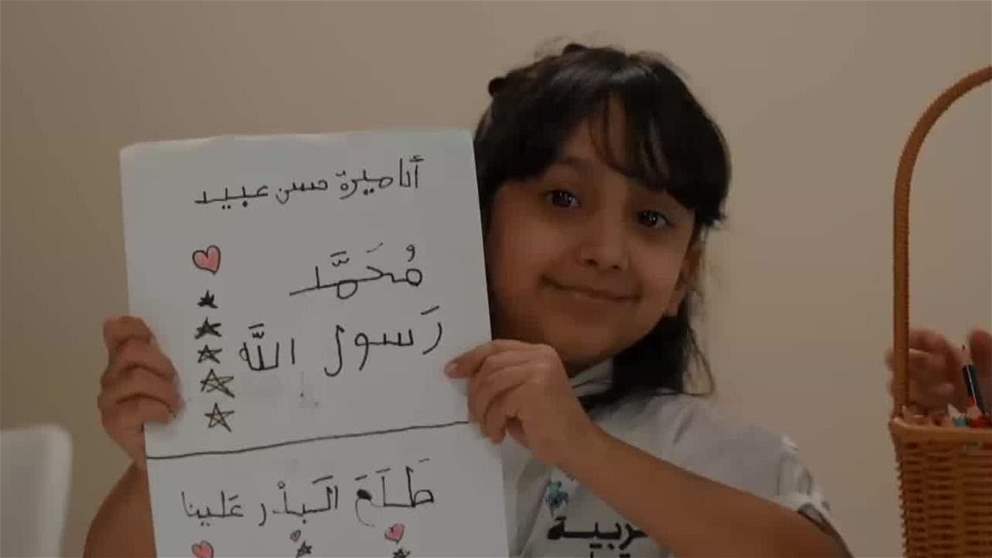 أنا ميرة حسن عبيد
مُحَمَّد
رَسول اللَّه
طَلَعَ البَدْر عَلينا